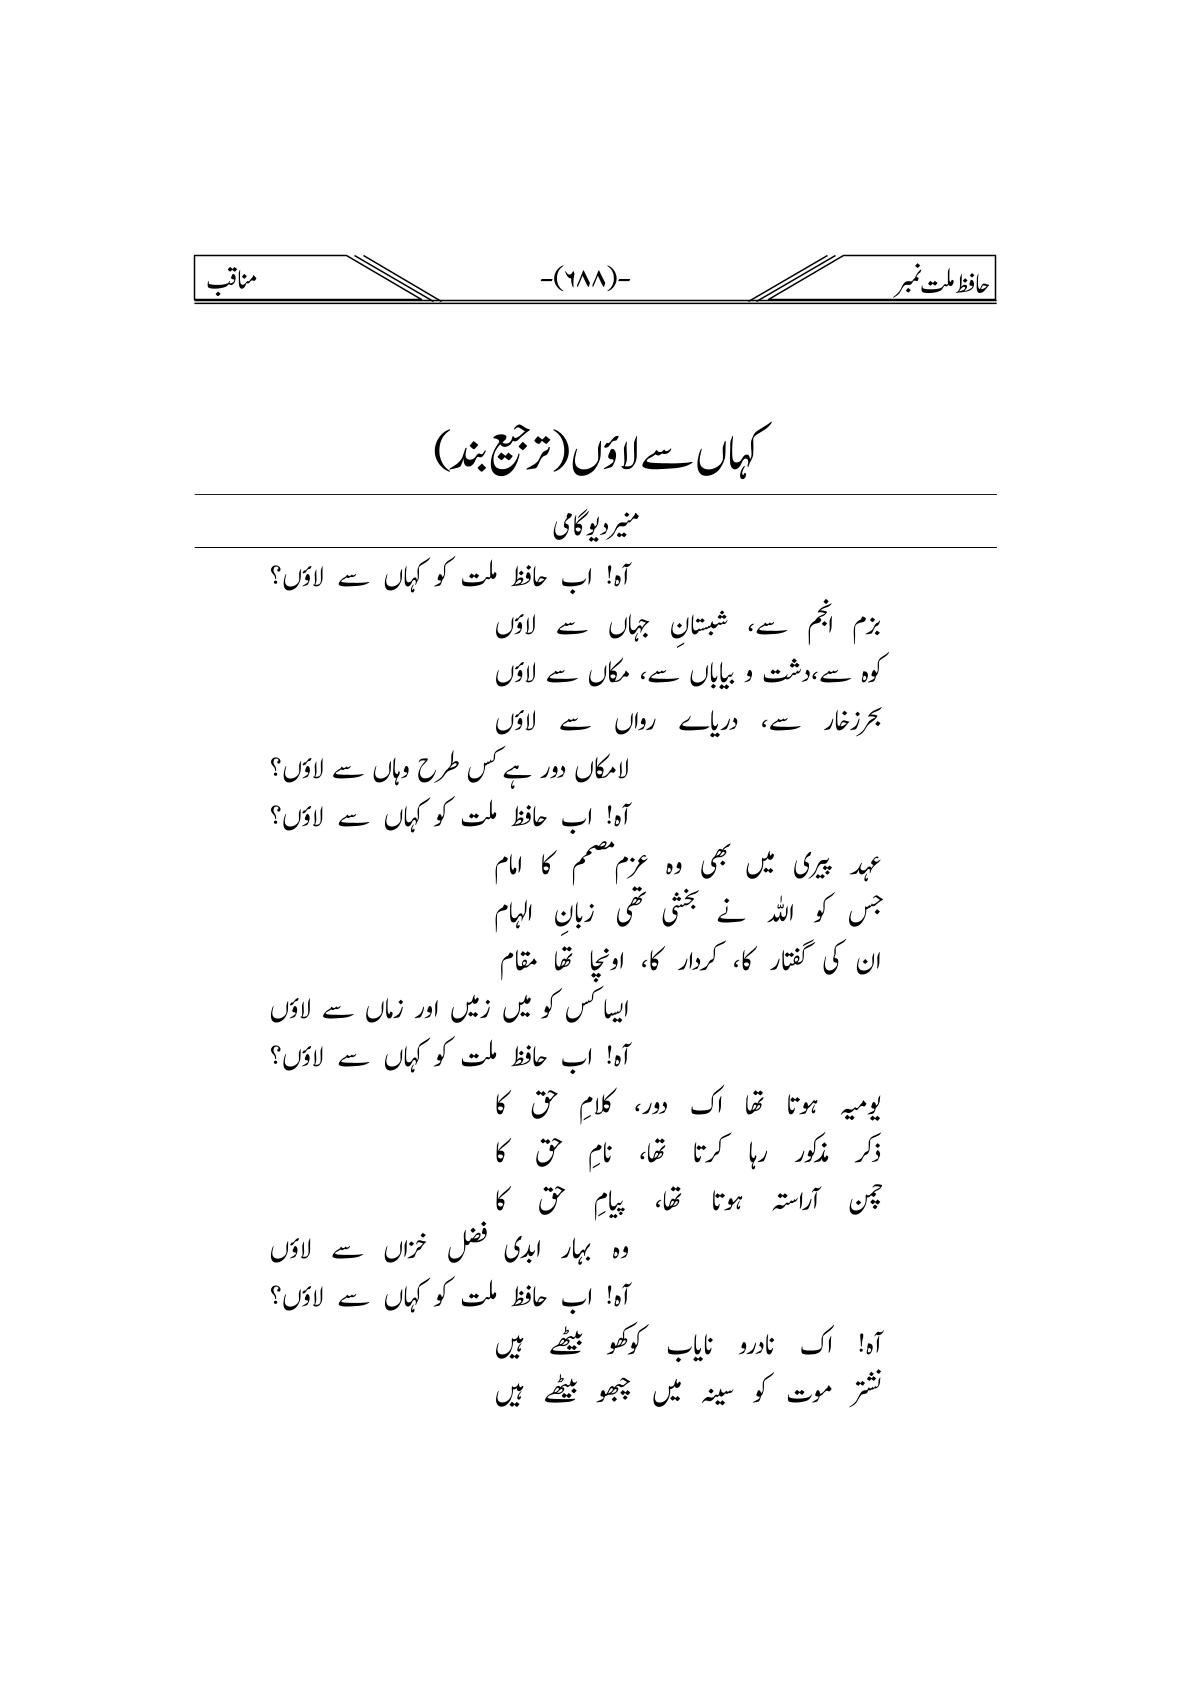 حافظ ملت نمبر -(۶۸۸)- مناقب
کہاں سے لاؤں (ترجیع بند)
منیر دیوگامی
آہ! اب حافظ ملت کو کہاں سے لاؤں؟
بزم انجم سے، شبستانِ جہاں سے لاؤں
کوہ سے،دشت و بیاباں سے، مکاں سے لاؤں
بحرزخار سے، دریاے رواں سے لاؤں
لامکاں دور ہے کس طرح وہاں سے لاؤں؟
آہ! اب حافظ ملت کو کہاں سے لاؤں؟
عہد پیری میں بھی وہ عزم مصمم کا امام
جس کو اللہ نے بخشی تھی زبانِ الہام
ان کی گفتار کا، کردار کا، اونچا تھا مقام
ایسا کس کو میں زمیں اور زماں سے لاؤں
آہ! اب حافظ ملت کو کہاں سے لاؤں؟
یومیہ ہوتا تھا اک دور، کلامِ حق کا
ذکر مذکور رہا کرتا تھا، نامِ حق کا
چمن آراستہ ہوتا تھا، پیامِ حق کا
وہ بہار ابدی فضل خزاں سے لاؤں
آہ! اب حافظ ملت کو کہاں سے لاؤں؟
آہ! اک نادرو نایاب کوکھو بیٹھے ہیں
نشتر موت کو سینہ میں چبھو بیٹھے ہیں